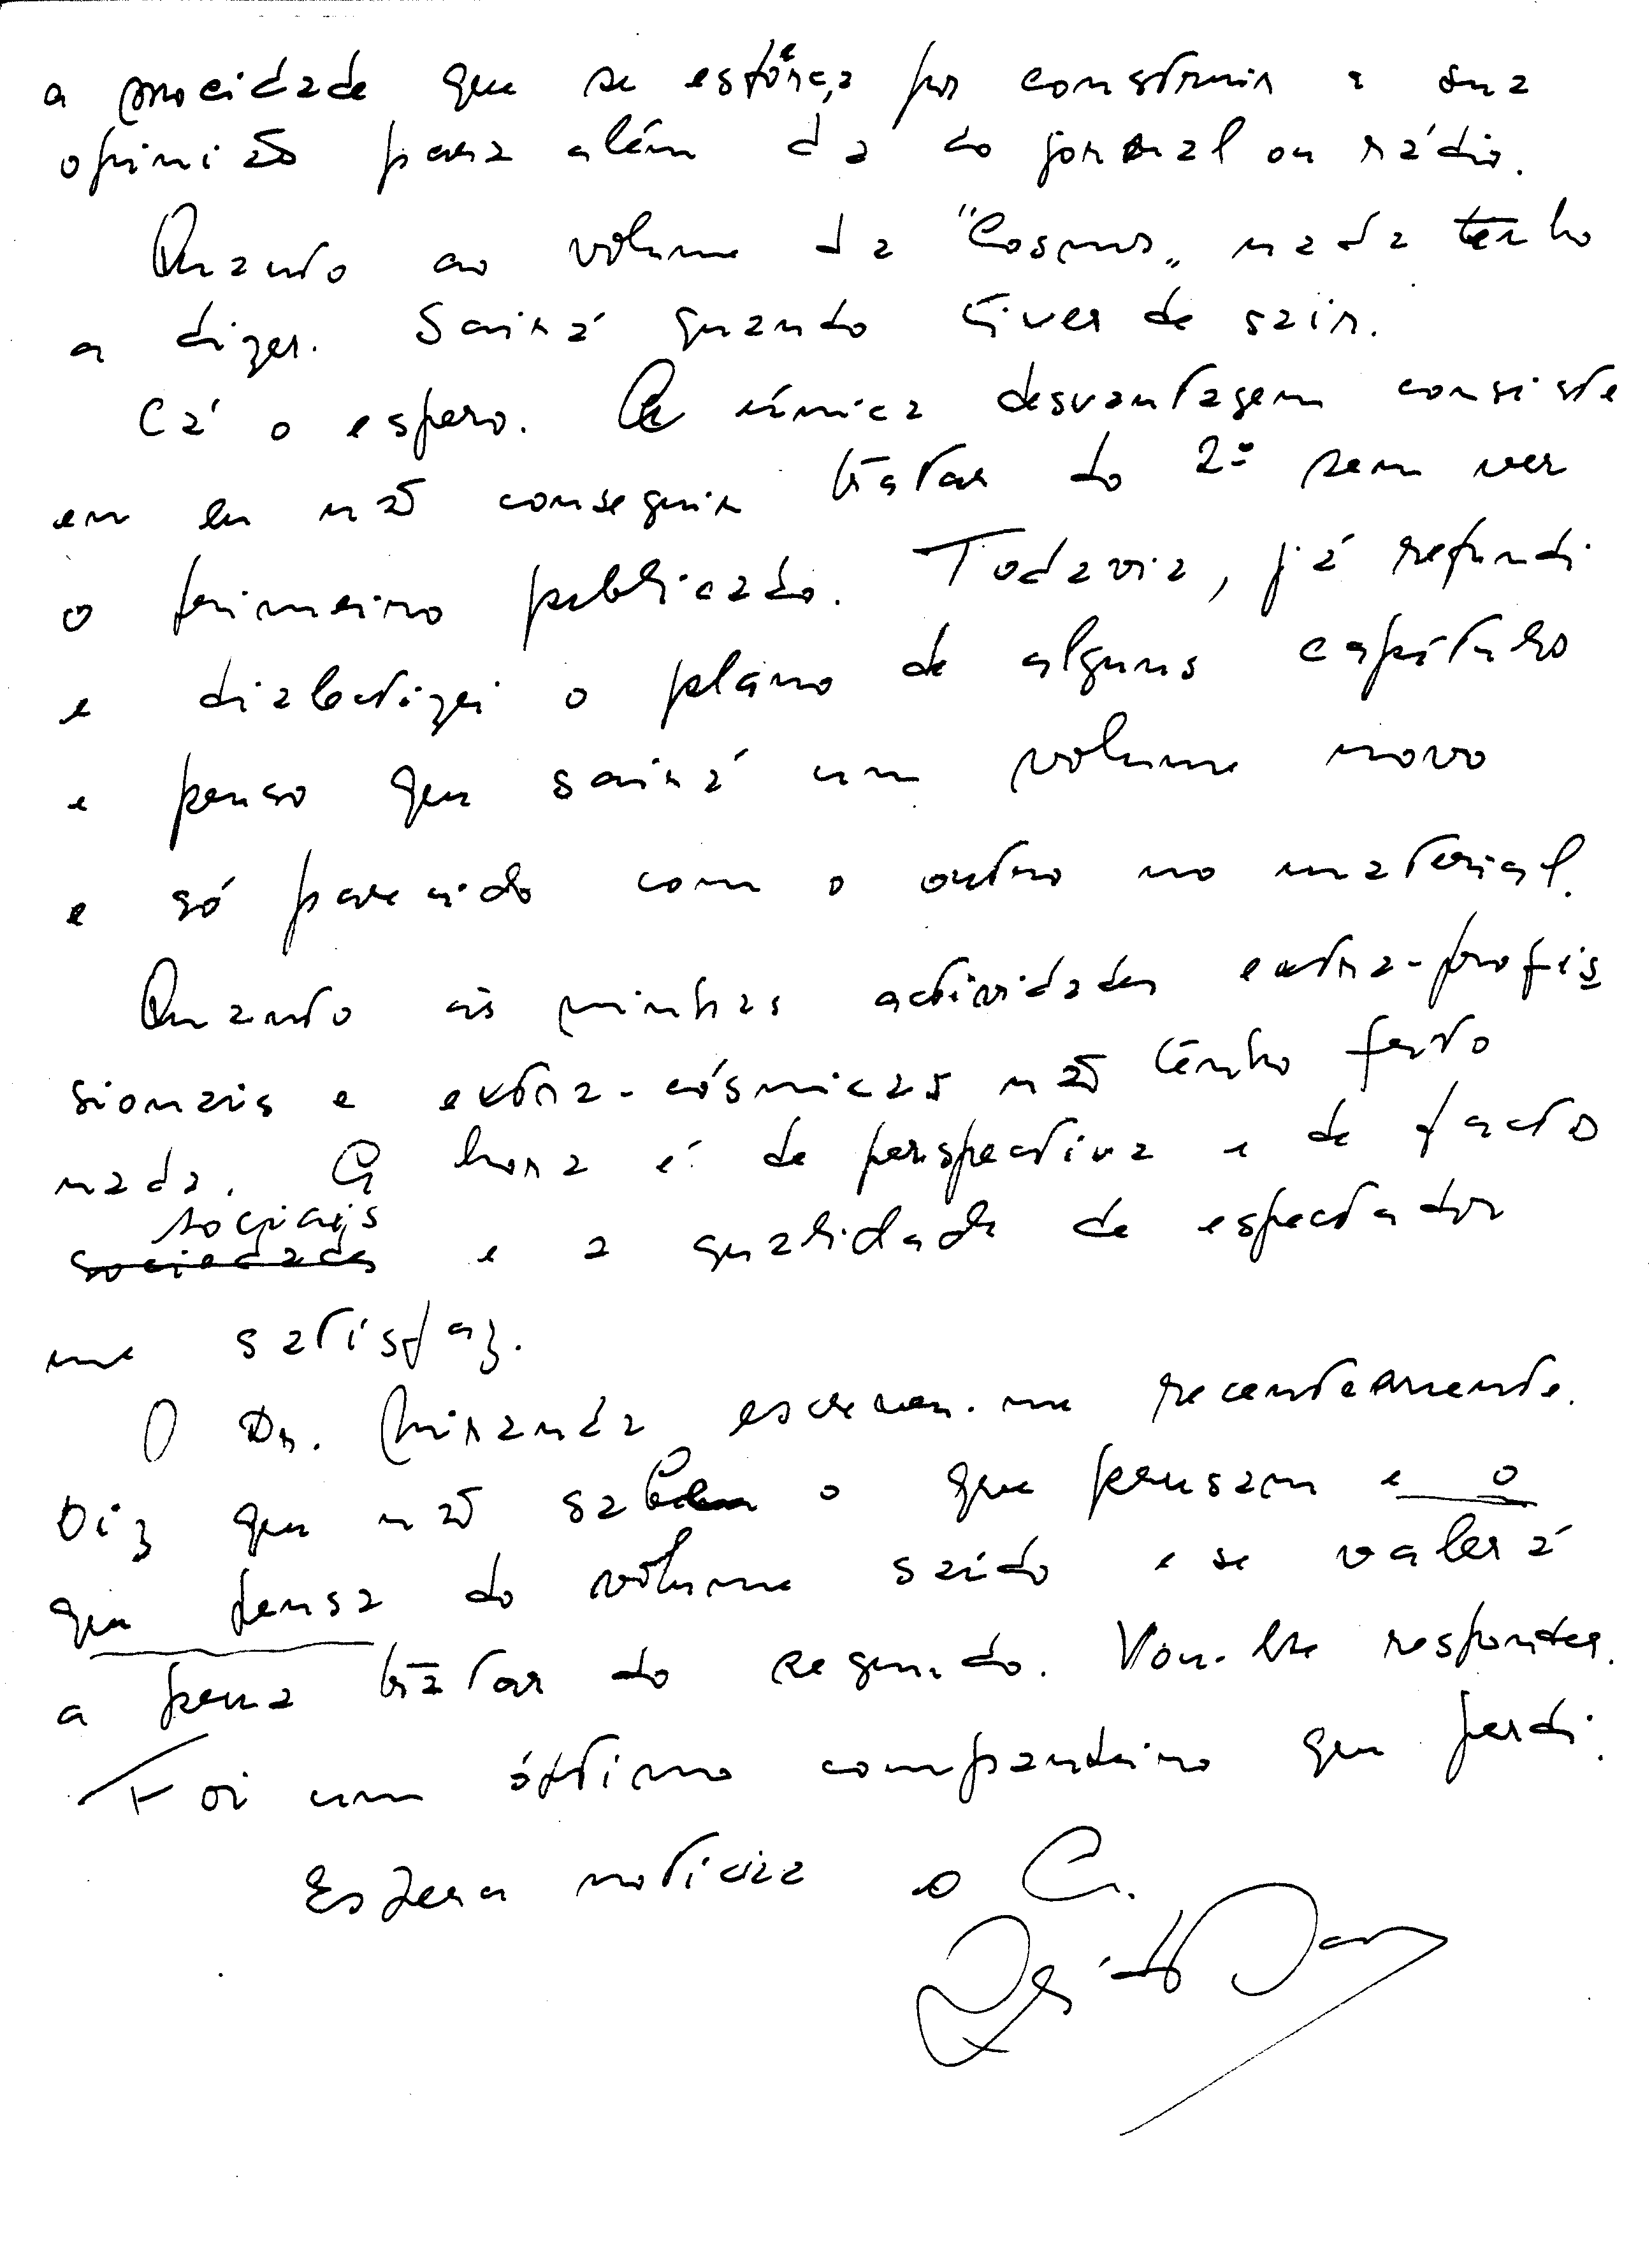 a mocidade que se esforça por construir a sua
opinião para além da do jornal ou rádio.
Quanto ao volume da "Cosmos„ nada tenho
a dizer. Sairá quando tiver de sair.
Cá o espero. A única desvantagem consiste
em eu não conseguir tratar do 2º sem ver
o primeiro publicado. Todavia, já refundi
e dialectizei o plano de alguns capítulos
e penso que sairá um volume novo
e só parecido com o outro no material.
Quanto às minhas actividades extra-profis
sionais e extra-cósmicas não tenho feito
nada. A hora é de perspectiva e de factos
sociais
sociedades e a qualidade de espectador
me satisfaz.
O Dr. Miranda escreveu-me recentemente.
Diz que não sabem o que pensam e o
que pensa do volume saído e se valerá
a pena tratar do segundo. Vou-lhe responder.
Foi um óptimo companheiro que perdi.
Espera notícias o C.